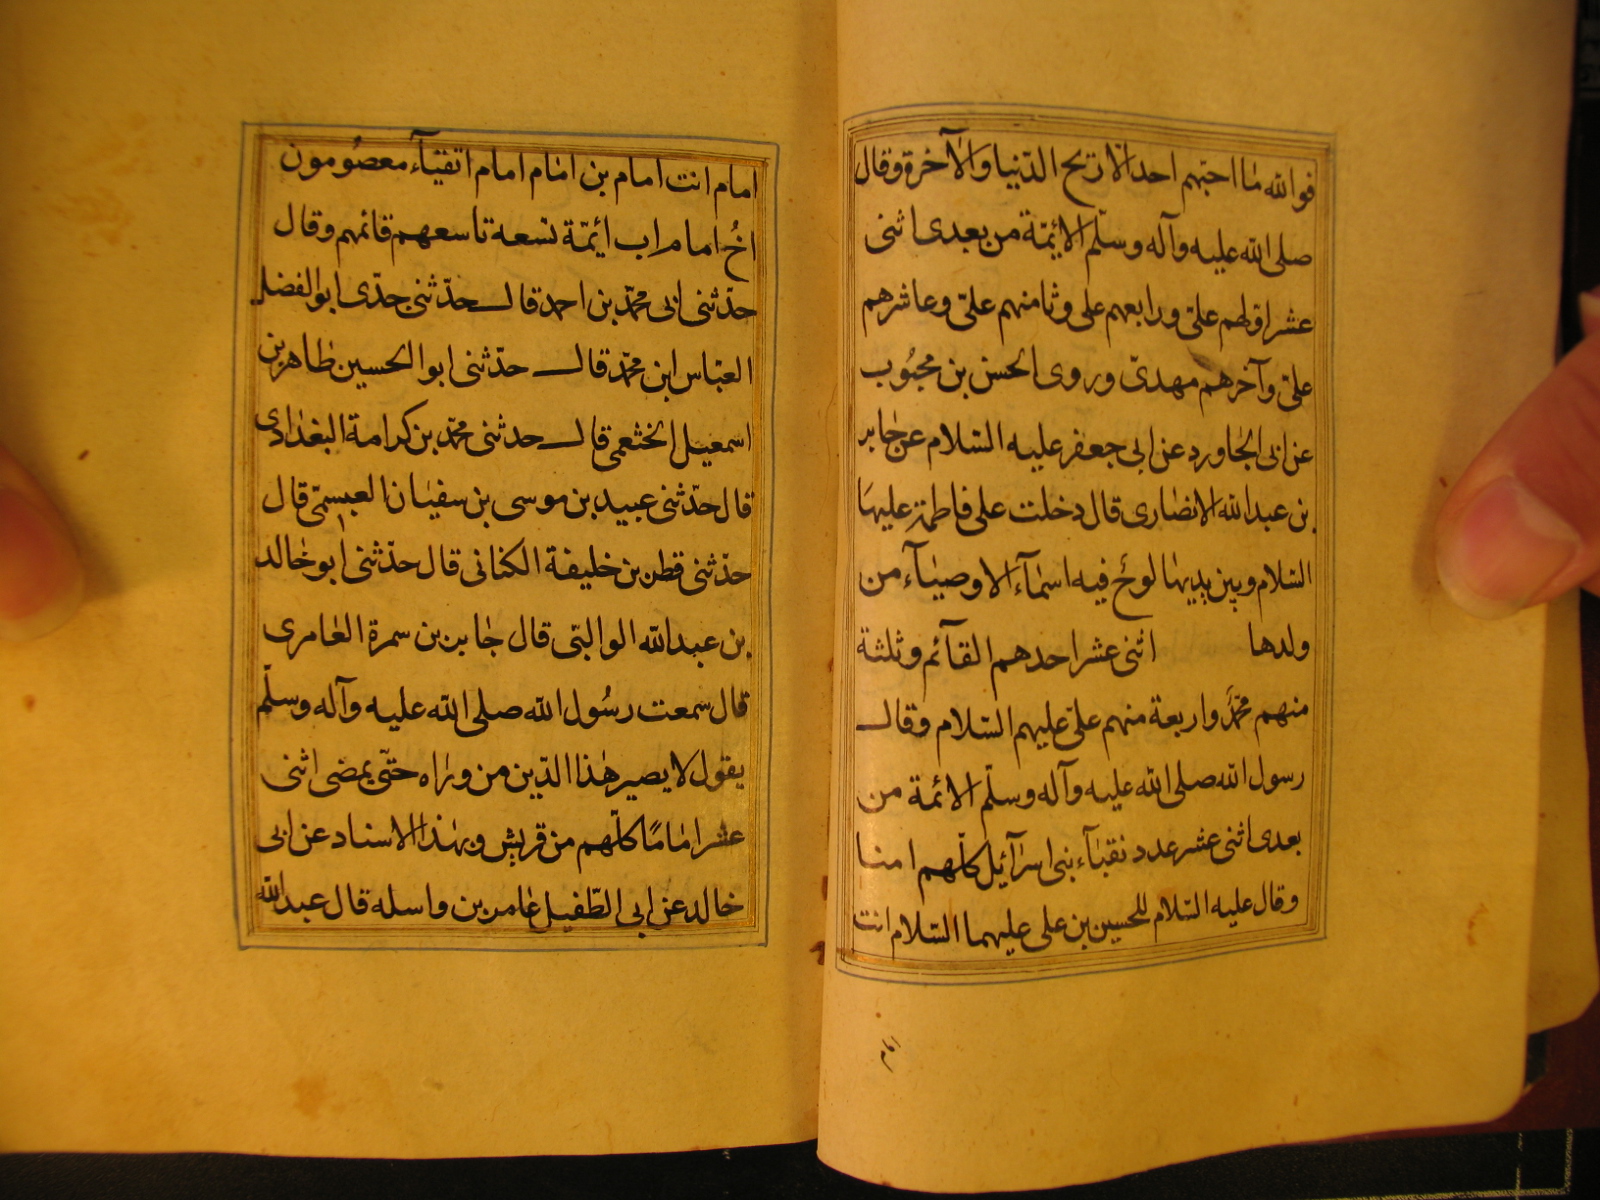 فوالله ما احبّهم احد الّا ربح الدّنيا والآخرة وقال
صلى الله عليه وآله وسلّم الائمّة من بعدى اثنى
عشر اوّلهم علىّ ورابعهم على وثامنهم علىّ وعاشرهم
علىّ وآخرهم مهدىّ وروى الحسن بن محبُوب
عن ابى الجاورد عن ابى جعفر عليه السّلام عن جابر
بن عبدالله الانصارى قال دخلت على فاطمة عليها
السّلام وبين يديها لوحٌ فيه اسمآء الاوصيآء من
ولدها اثنى عشر احدهم القآئم وثلثة
منهم محمّدٌ واربعة منهم علىّ عليهم السّلام وقال
رسول الله صلى الله عليه وآله وسلّم الائمة من
بعدى اثنى عشر عدد نقبآء بنى اسرآئيل كلّهم امنا
وقال عليه السّلام للحسين بن على عليهما السّلام انت
امام
امام انت امام بن امام امام اتقيآء معصُومون
اخُ امام اب ائمّة تسعة تاسعهم قائمهم وقال
حدّثنى ابى محمّد بن احمد قال حدّثنى جدّى ابوالفضل
العبّاس ابن محمّد قال حدّثنى ابوالحسين طاهر بن
اسمعيل الخثعمى قال حدثنى محمّد بن كرامة البغدادى
قال حدّثنى عبيد بن موسى بن سفيان العبسمّى قال
حدّثنى قطن بن خليفة الكنانى قال حدّثنى ابو خالد
بن عبدالله الوالبّى قال جابر بن سمرة العامرى
قال سمعت رسُول الله صلى الله عليه وآله وسلّم
يقول لا يصير هذا الدّين من وراه حتّى يمضى اثنى
عشر امامًا كلّهم من قريش وبهذا الاسناد عن ابى
خالد عن ابى الطّفيل عامر بن واسله قال عبدالله